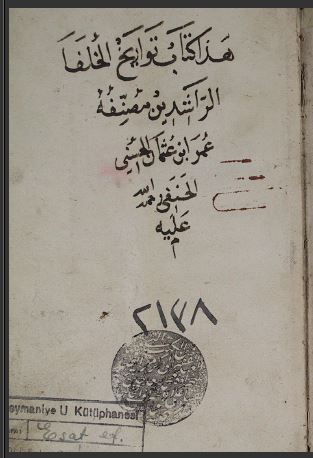 هذا كتاب تواريخ الخلفا
الراشدين مصنفه
عمر ابن عثمان الحسني
الحنفي
عليه
م
٢١٧٨
eymaniye U Kütüphanesi
Esat ef.